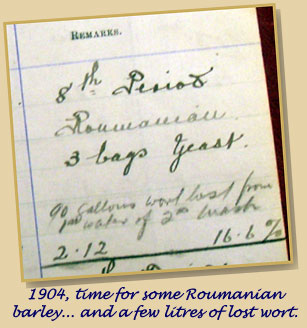 REMARKS.
8th Period
Roumanian.
3 bags Yeast.
90 gallons wort lost from
water of 2nd mash
2.12 16.6%
1904, time for some Roumanian
barley... and a few litres of lost wort.